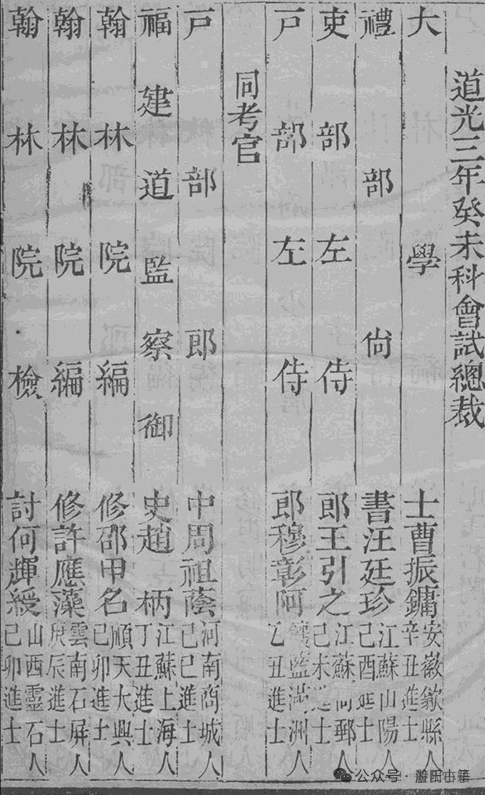 道光三年癸未科會試總裁
大學士曹振鏞 安徽歙縣人 辛丑進士
禮部尙書汪廷珍 江蘇山陽人 己酉進士
吏部左侍郎王引之 江蘇高郵人 己未進士
戸部左侍郎穆彰阿 鑲藍滿洲人 乙丑進士
同考官
戸部郎中周祖蔭 河南商城人 己巳進士
福建道監察御史趙柄 江蘇上海人 丁丑進士
翰林院編修邵甲名 順天大興人 己卯進士
翰林院編修許應藻 雲南石屏人 庚辰進士
翰林院檢討何輝綬 山西靈石人 己卯進士